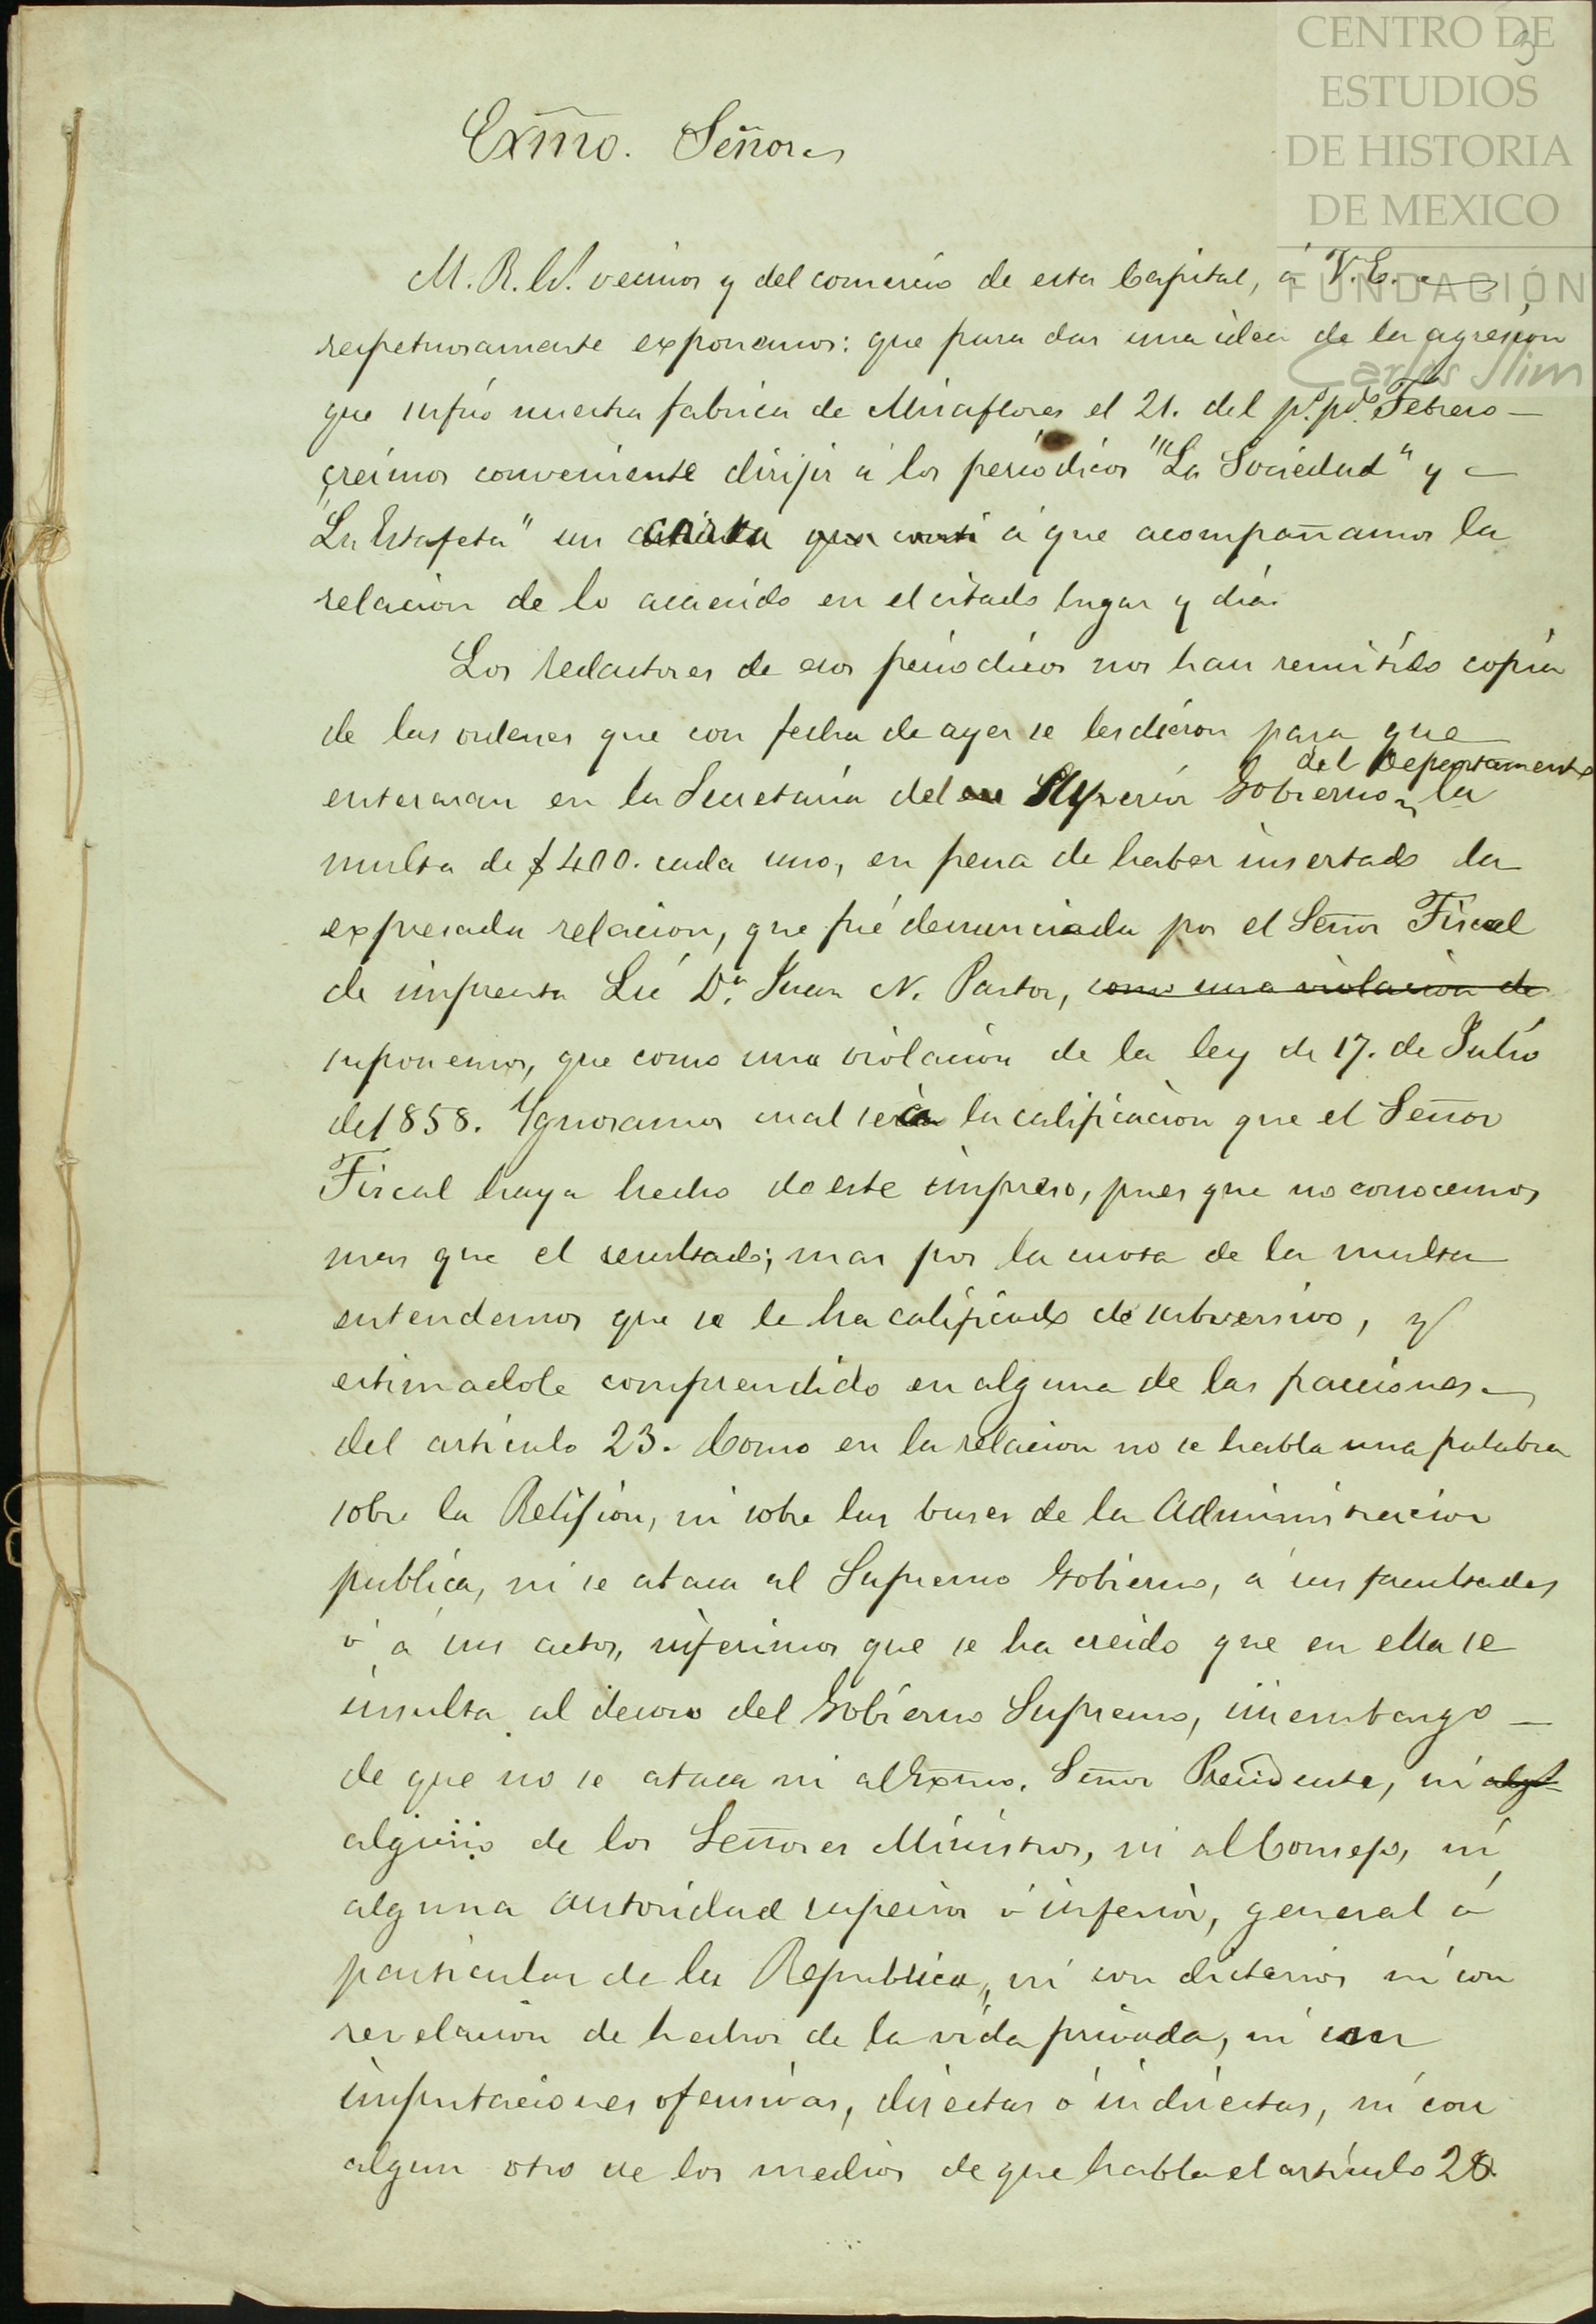 CENTRO DE
ESTUDIOS
DE HISTORIA
DE MEXICO
FUNDACIÓN
Carlos Slim
3
Exm̃o. Señor
M. R. W. vecinos y del comercio de esta Capital, á V. E.
respetuosamente exponemos: que para dar una idea de la agresion
que sufrió nuestra fabrica de Miraflores el 21. del pº. pdº. Febrero
creímos conveniente dirijir á los periódicos "La Sociedad" y
"La Estafeta" un carta que á que acompañamos la
relacion de lo acaecido en el citado lugar y dia.
Los redactores de esos periodicos nos han remitido copia
de las ordenes que con fecha de ayer se les dieron para que
enteraran en la Secretaría del Superior Gobierno del Departamento la
multa de $400. cada uno, en pena de haber insertado la
expresada relacion, que fué denunciada por el Señor Fiscal
de imprenta Lic Dn. Juan N. Pastor, como una violacion de
suponemos, que como una violacion de la ley de 17. de Julio
de 1858. Ygnoramos cual será la calificacion que el Señor
Fiscal haya hecho de este impreso, pues que no conocemos
mas que el resultado; mas por la cuota de la multa
entendemos que se le ha calificado de subversivo, y
estimadole comprendido en alguna de las fracciones
del artículo 23. Como en la relacion no se habla una palabra
sobre la Relijion, ni sobre las bases de la Administracion
publica, ni se ataca al Supremo Gobierno, á sus facultades
ó á sus actos, inferimos que se ha creido que en ella se
insulta al decoro del Gobierno Supremo, sin embargo
de que no se ataca ni al Exm̃o. Señor Presidente, ni
alguno de los Señores Ministros, ni al Consejo, ni
alguna autoridad superior ó inferior, general ó
particular de la Republica, ni con dicterios ni con
revelacion de hechos de la vida privada, ni con
imputaciones ofensivas, directas ó indirectas, ni con
algun otro de los medios de que habla el artículo 28.